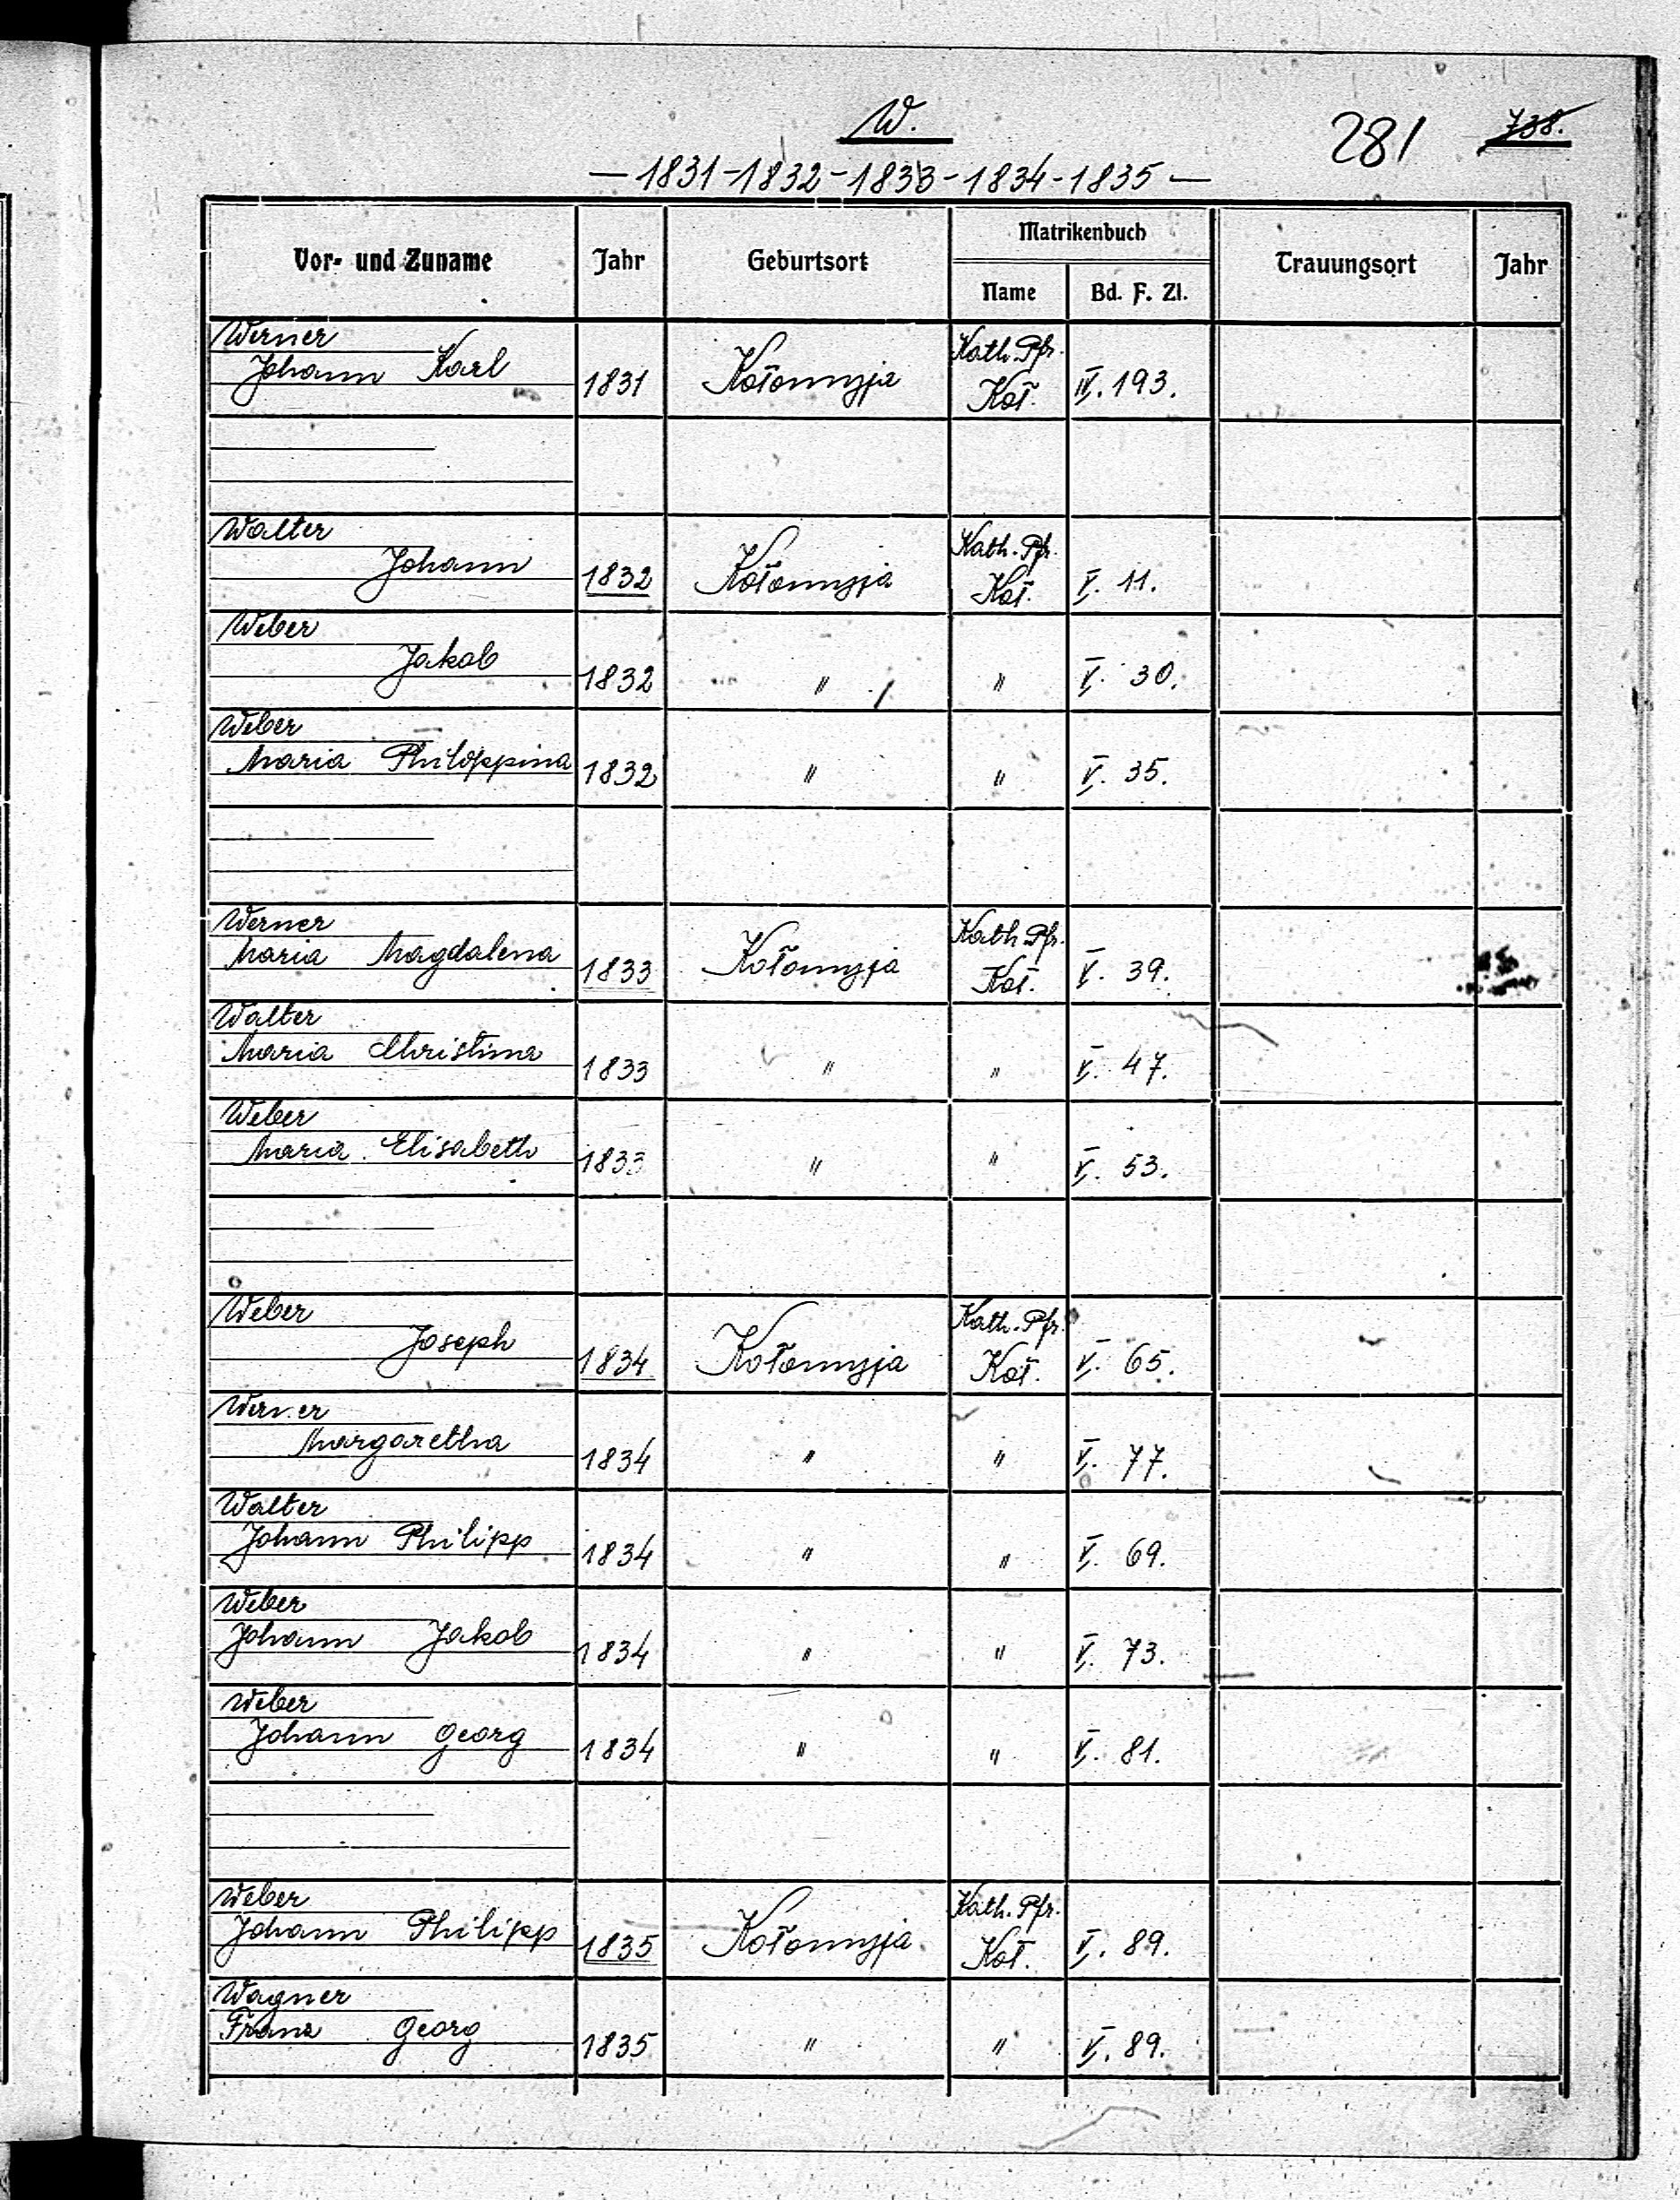 W.
281 738.
— 1831-1832-1833-1834-1835 —
Vor- und Zuname Jahr Geburtsort Matrikenbuch Trauungsort Jahr
Name Bd. F. Zl.
Werner
Johann Karl 1831 Kołomyja Kath. Pfr. Koł. IV. 193.
Walter
Johann 1832 Kołomyja Kath. Pfr. Koł. V. 11.
Weber
Jakob 1832 " " V. 30.
Weber
Maria Philippina 1832 " " V. 35.
Werner
Maria Magdalena 1833 Kołomyja Kath. Pfr. Koł. V. 39.
Walter
Maria Christina 1833 " " V. 47.
Weber
Maria Elisabeth 1833 " " V. 53.
Weber
Joseph 1834 Kołomyja Kath. Pfr. Koł. V. 65.
Werner
Margaretha 1834 " " V. 77.
Walter
Johann Philipp 1834 " " V. 69.
Weber
Johann Jakob 1834 " " V. 73.
Weber
Johann Georg 1834 " " V. 81.
Weber
Johann Philipp 1835 Kołomyja Kath. Pfr. Koł. V. 89.
Wagner
Franz Georg 1835 " " V. 89.